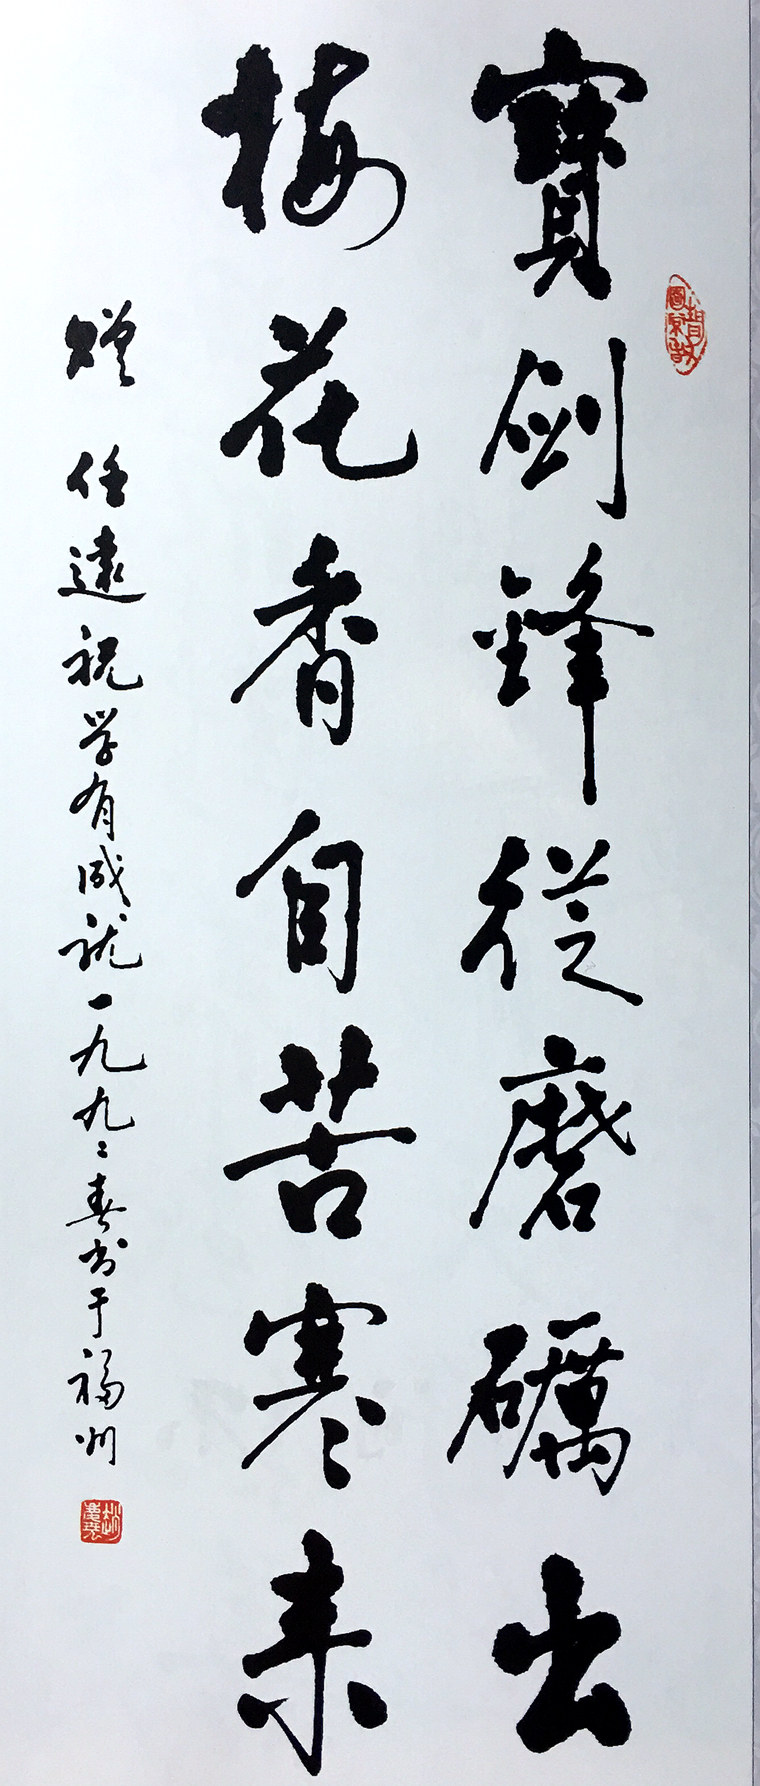 寶劍鋒從磨礪出
梅花香自苦寒来
贈 任遠祝学有成就一九九二春书于福州